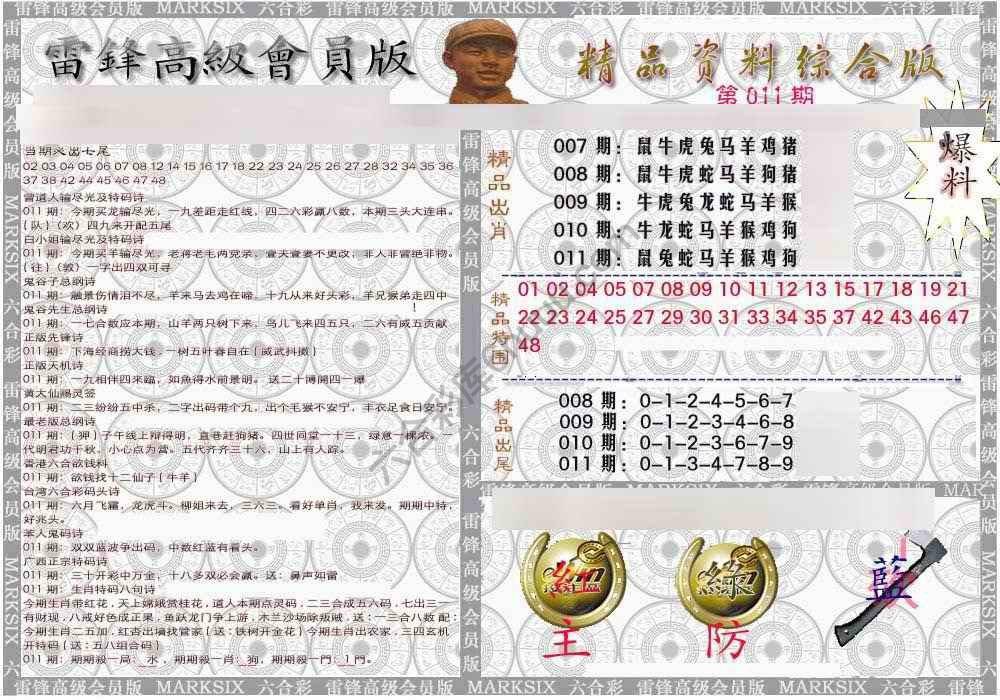 雷锋高级会员版 MARKSIX 六合彩 雷锋高级会员版 MARKSIX 六合彩 雷锋高级会员版 MARKSIX
雷鋒高級會員版
精品资料综合版
第 011 期
爆料
当期火出七尾
02 03 04 05 06 07 08 12 14 15 16 17 18 22 23 24 25 26 27 28 32 34 35 36
37 38 42 44 45 46 47 48
曾道人输尽光及特码诗
011 期：今期买龙输尽光，一九差距走红线，四二六彩赢八数，本期三头大连串。
{队}（欢）四九来开配五尾
白小姐输尽光及特码诗
011 期：今期买羊输尽光，老蒋老毛两宽亲，壹天壹妻不更改，非人非冒绝非物。
{往}（敦）一字出四双可寻
鬼谷子总纲诗
011 期：融景伤情泪不尽，羊来马去鸡在啼，十九从来好头彩，羊兄猴弟走四中
鬼谷先生总纲诗
011 期：一七合数应本期，山羊两只树下来，鸟儿飞来四五只，二六有威五贡献
正版先锋诗
011 期：下海经商捞大钱，一树五叶春自在{威武抖擞}
正版天机诗
011 期：一九相伴四来臨，如魚得水前景明。 送二十博開四一爆
黄大仙赐灵签
011 期：二三纷纷五中杀，二字出码带个九，出个毛猴不安宁，丰衣足食日安宁。
最老版总纲诗
011 期：{狎}子午线上辩得明，直巷赶狗猪。四世同堂一十三，绿意一棵浓。一
代明君功千秋，小心点为营。五代齐齐三十六，山上有人踪。
香港六合欲钱料
011 期：欲钱找十二仙子{牛羊}
台湾六合彩码头诗
011 期：六月飞霜，龙虎斗。柳姐来去，三六三。看好单肖，我来发。期期中特，
好兆头。
本人鬼码诗
011 期：双双蓝波争出码，中数红蓝有看头。
广西正宗特码诗
011 期：三十开彩中万金，十八多双必会赢。送：鼻声如雷
011 期：生肖特码八句诗
今期生肖带红花，天上嫦娥赏桂花，道人本期点灵码，二三合成五六码，七出三一
有财现，八戒好色成正果，鱼跃龙门争上游，木兰沙场除叛贼，送：一三合八数 配：
今期生肖二五加，红杏出墙找管家{送：铁树开金花}今期生肖出农家，三四玄机
开特码{送：五八组合码}
011 期：期期殺一局：水，期期殺一肖：狗，期期殺一門：1門。
精品出肖
007 期：鼠牛虎兔马羊鸡猪
008 期：鼠牛虎蛇马羊狗猪
009 期：牛虎兔龙蛇马羊猴
010 期：牛龙蛇马羊猴鸡狗
011 期：鼠兔蛇马羊猴鸡狗
精品特围
01 02 04 05 07 08 09 10 11 12 13 15 17 18 19 21
22 23 24 25 27 29 30 31 33 34 35 37 42 43 46 47
48
精品出尾
008 期：0-1-2-4-5-6-7
009 期：0-1-2-3-4-6-8
010 期：0-1-2-3-6-7-9
011 期：0-1-3-4-7-8-9
紅
綠
藍
主
防
雷锋高级会员版 MARKSIX 六合彩 雷锋高级会员版 MARKSIX 六合彩 雷锋高级会员版 MARKSIX